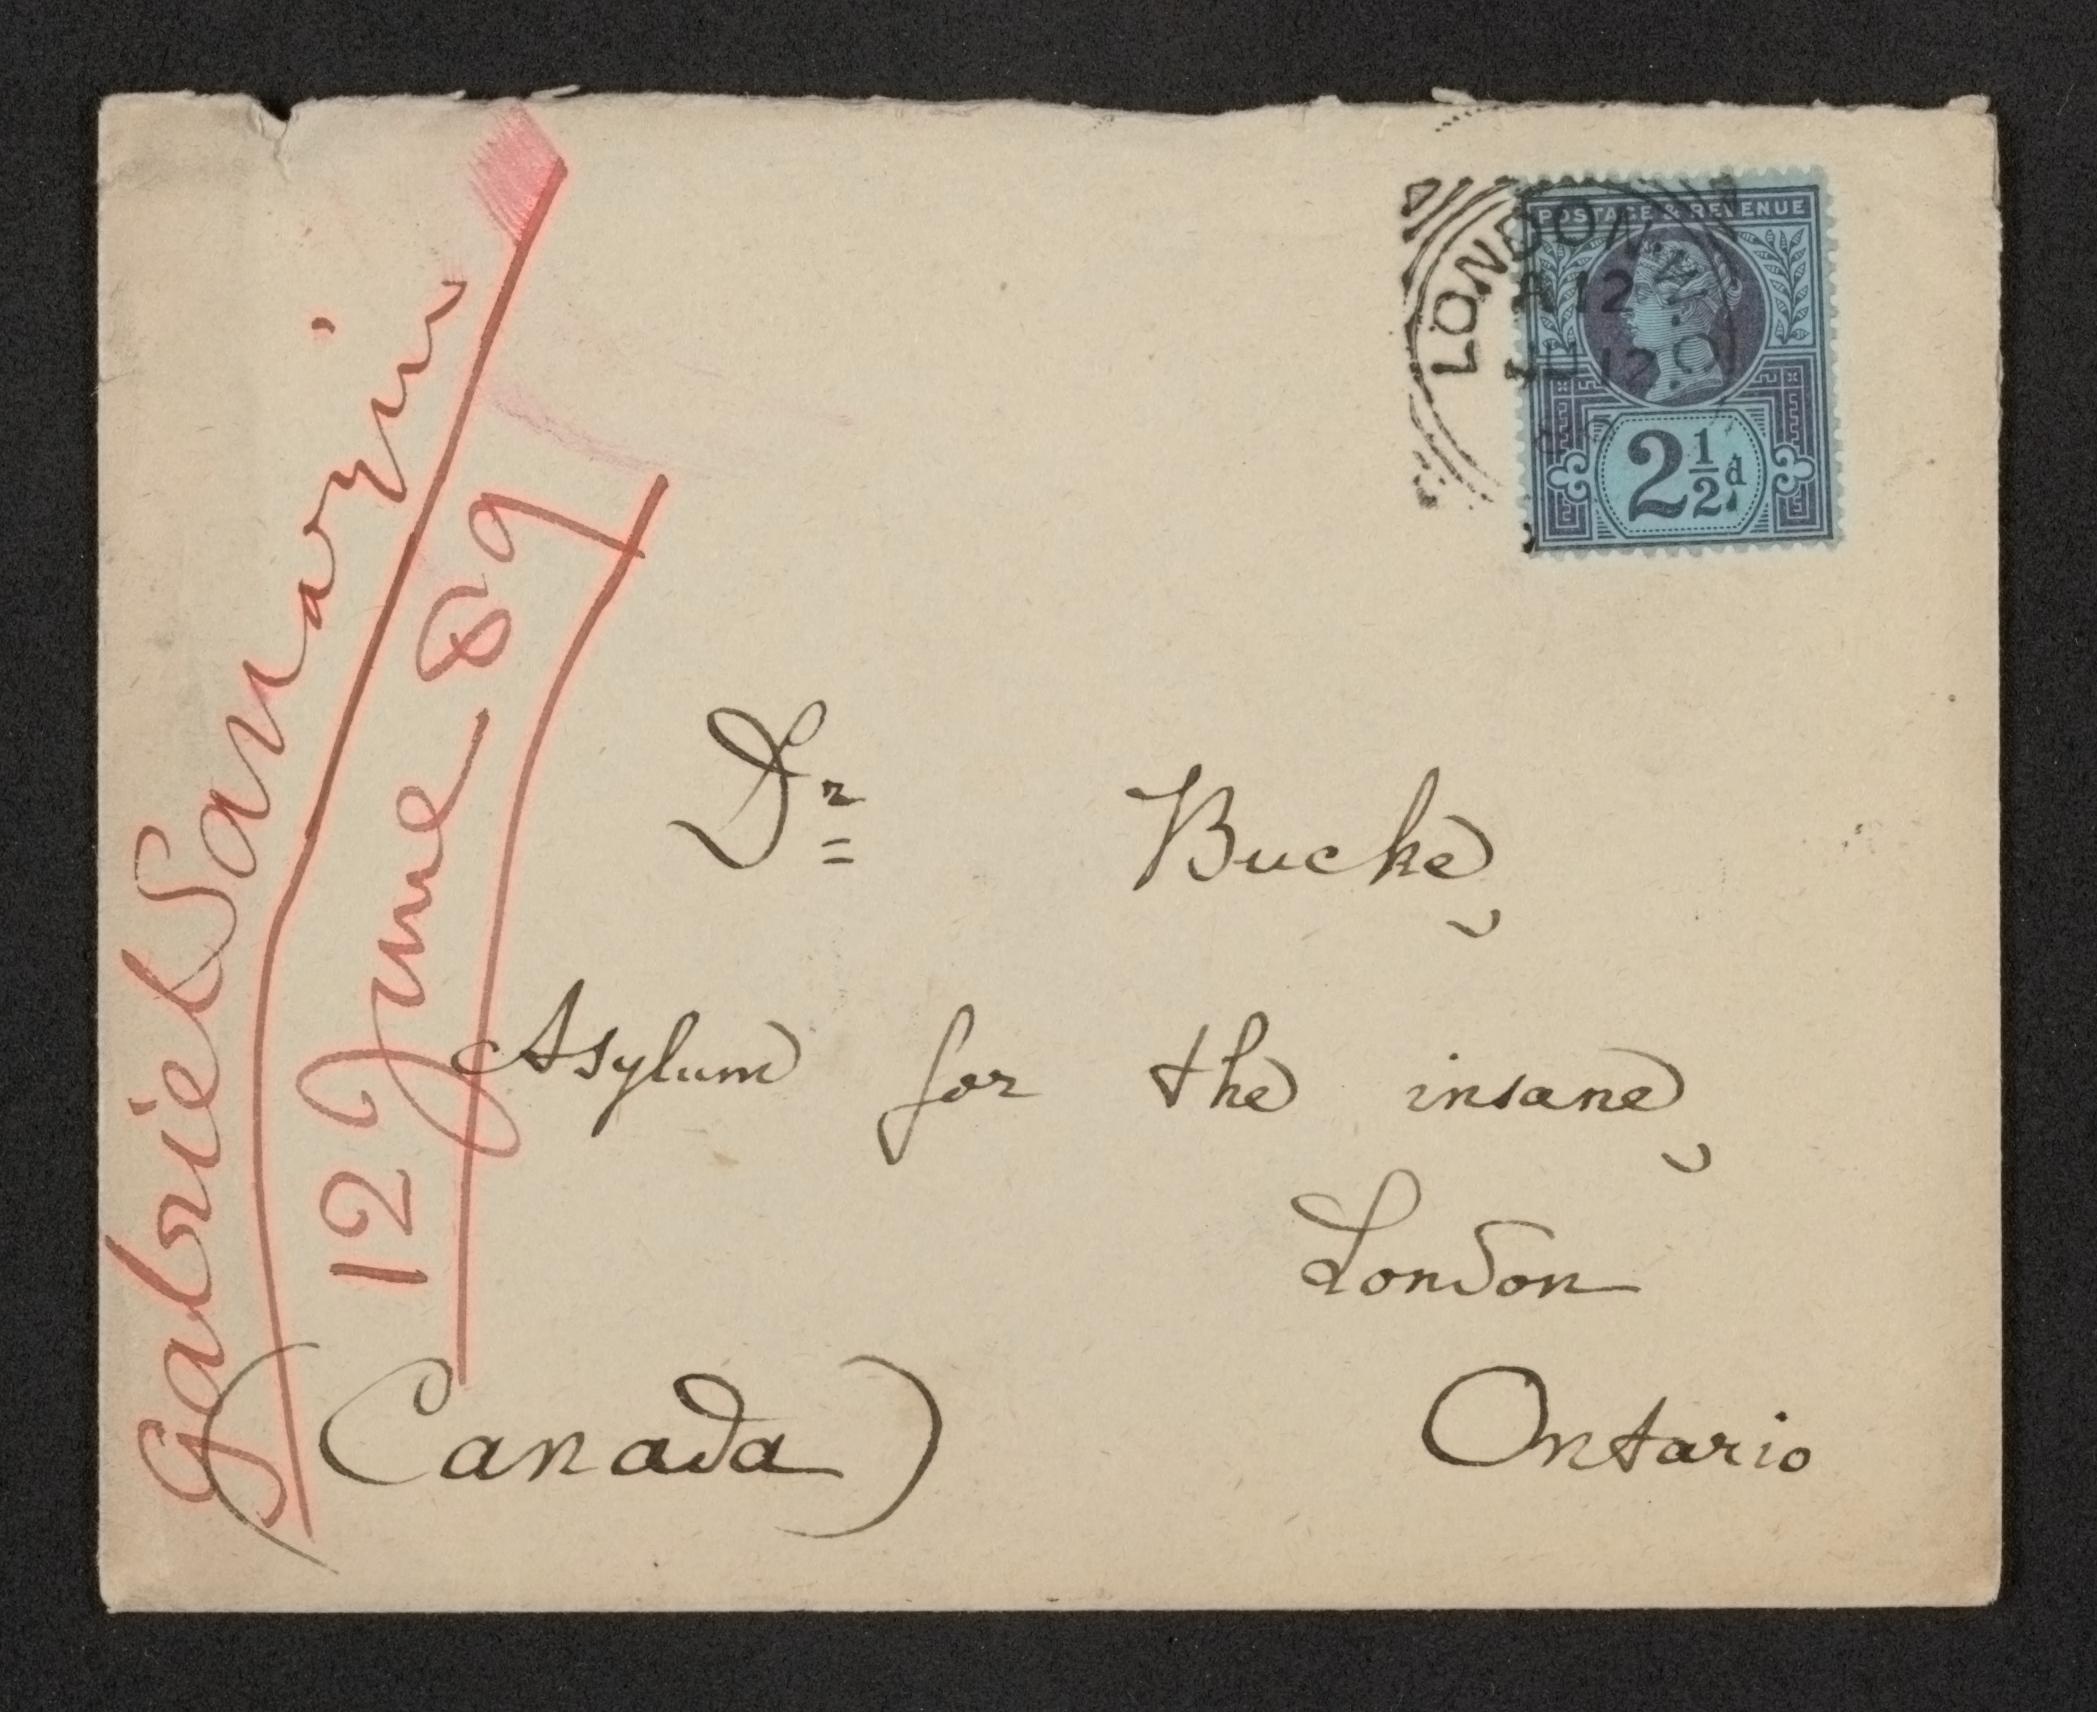 Gabriel Sarrazin
12 June 89
POSTAGE & REVENUE
LONDON.W.
A 12
JU 12
2½d
Dr Bucke,
Asylum for the insane,
London
Ontario
(Canada)